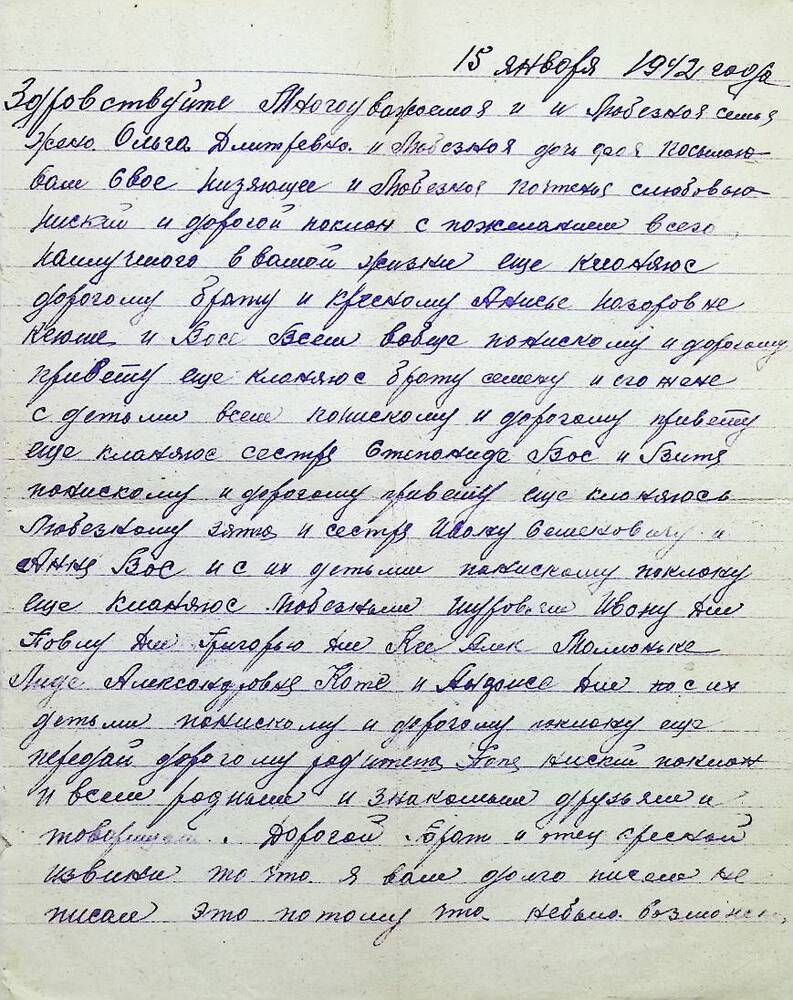 15 января 1942 года
Здровствуйте Многоуважаемоя и и Любезноя семья
жено Ольга Дмитревно и Любезноя дочь посылаю
вам Свое низяющее и Любезноя почтения слюбовью
ниский и дорогой поклон с пожеланием всего
наилучшого в вашой жизни еще кланяюс
дорогому брату и крескому Анисье Назоровне
Ксюше и Вас Всем вобще понискому и дорогому
привету еще кланяюс брату семену и его жене
с детьми всем понискому и дорогому привету
еще кланяюс сестре Степониде Вос и Витя
понискому и дорогому привету еще клоняюсь
Любезному зятю и сестре Ивону Семеновичу и
Анне Вос и с их детьми понискому поклону
еще кланяюс Любезным Ивону Дм
Повлу Дм Григорью Дм Алек
Лиде Александровне Коте и Дм но с их
детьми понискому и дорогому поклону еще
передай дорогому родителю ниский поклон
и всем родным и знакомым друзьям и
Дорогой Брат и отец креской
извини то что я вам долго писем не
писал это потому что небыло